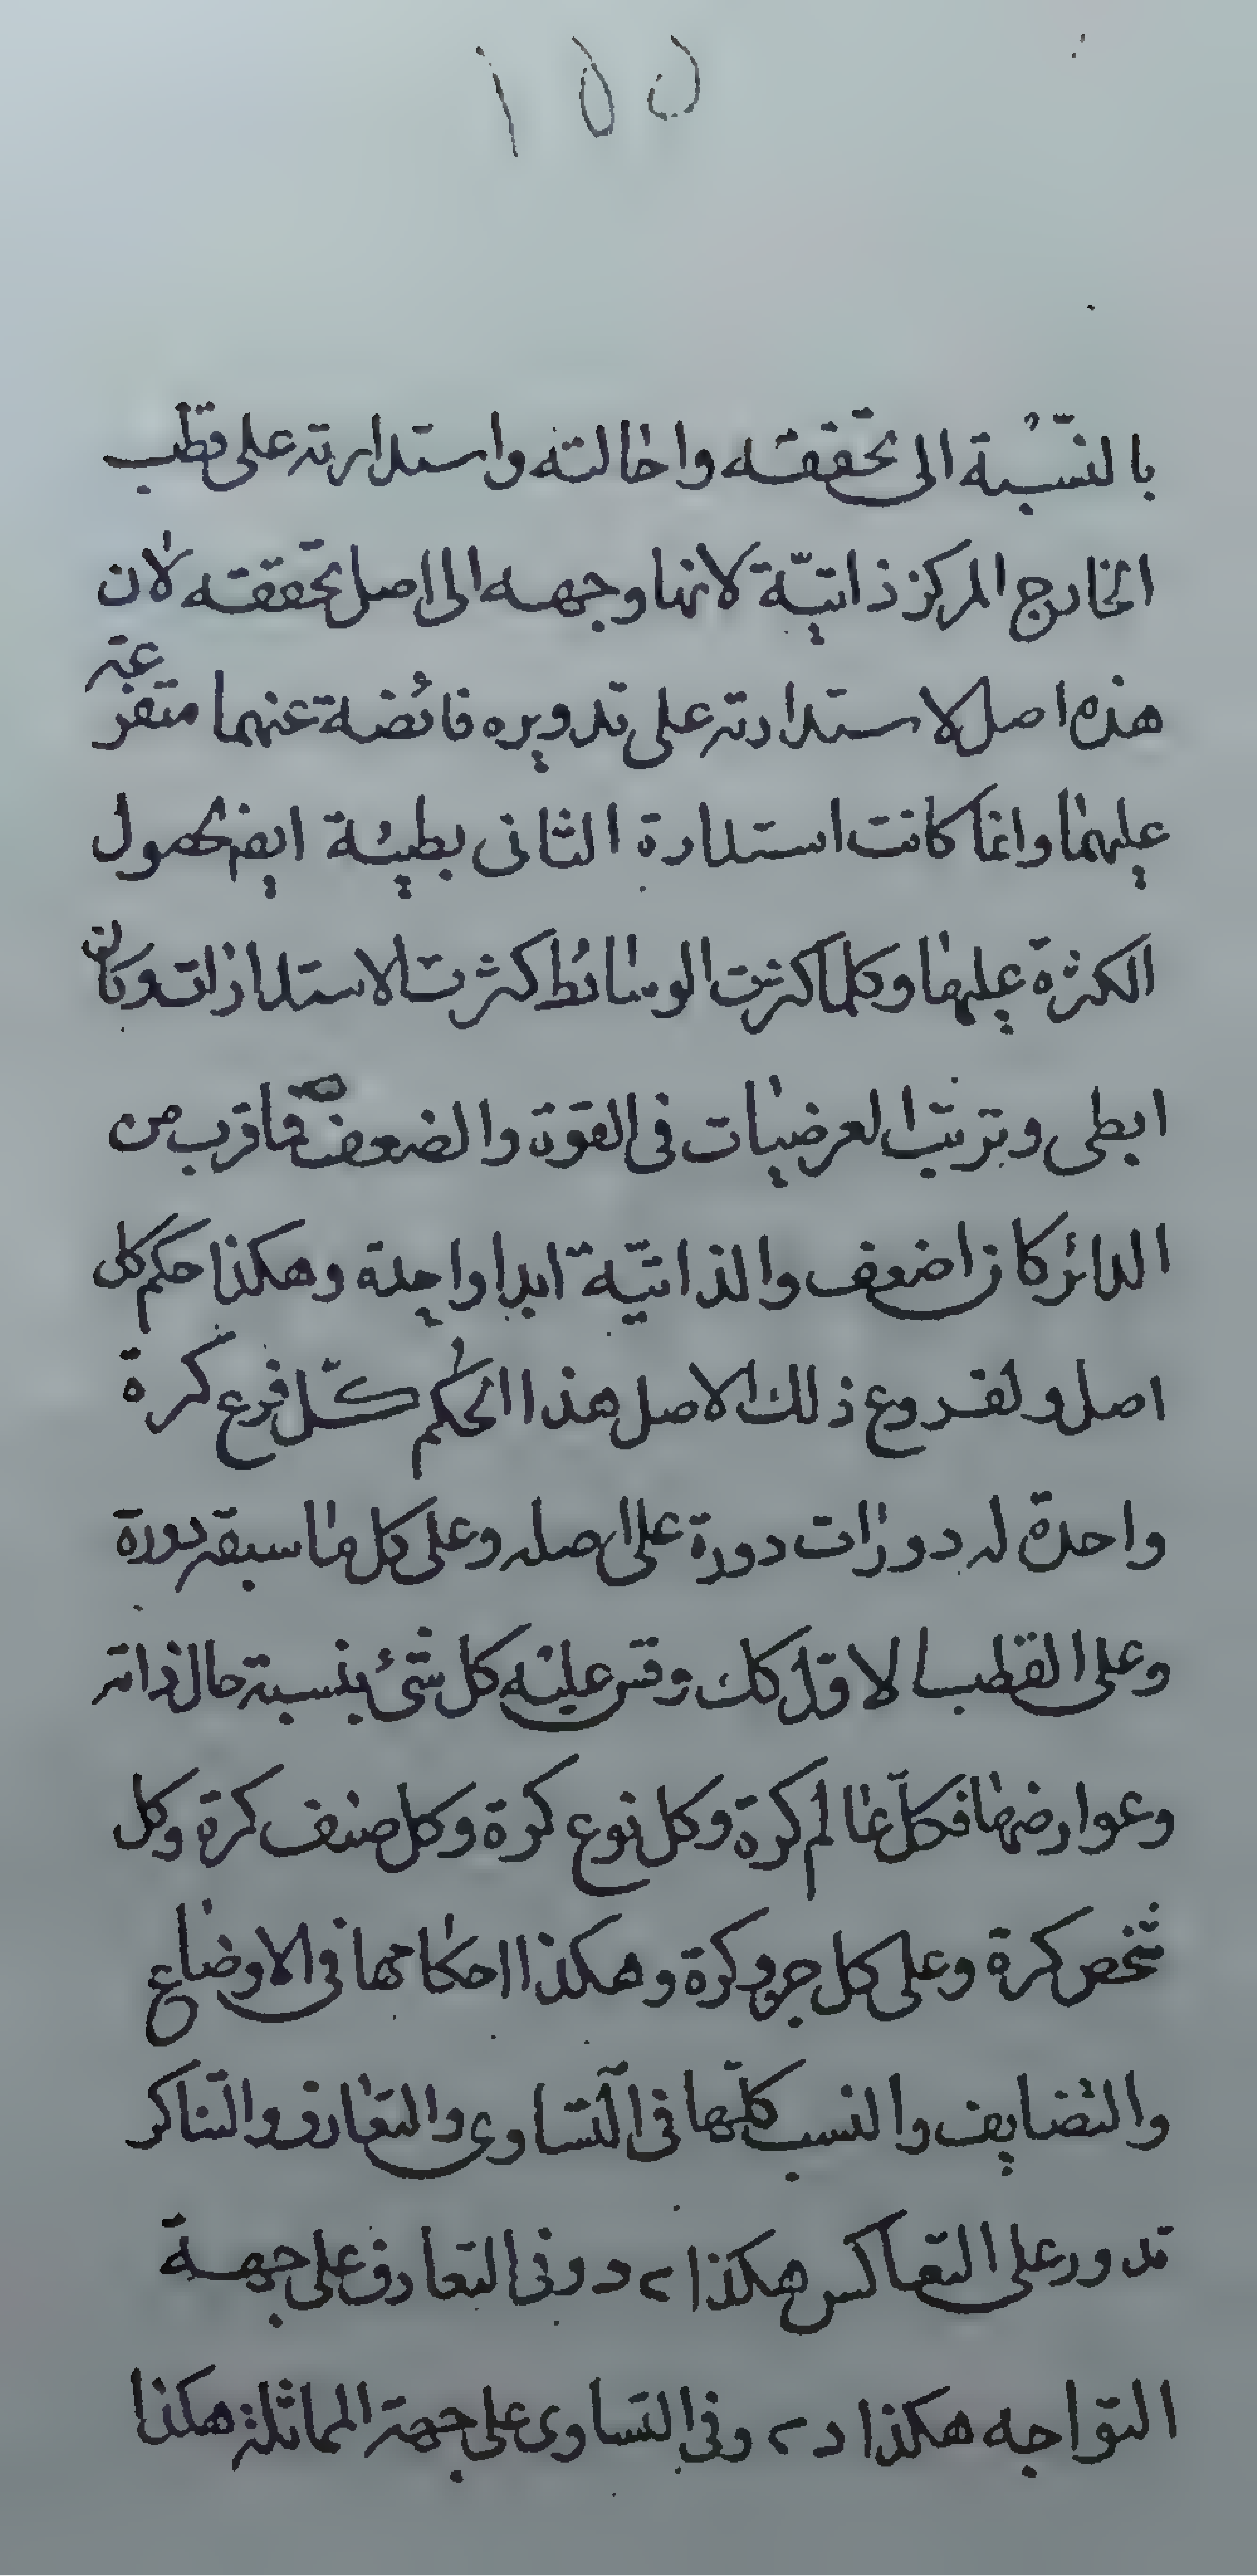 ١٥٥
بالنّسْبة الى تحققه واحالته واستدارته على قطب
الخارج المركز ذاتيّة لانها وجهه الى اصل تحققه لان
هذه اصل لاستدارته على تدويره فائضة عنهما متفرعة
عليهما وانما كانت استدارة الثانى بطيئة ايض لحصول
الكثرة عليها وكلما كثرت الوسائط كثرت الاستدارات وكانت
ابطى وترتب العرضيات فى القوة والضعف فما قرب من
الدائر كان اضعف والذاتيّة ابدا واحدة وهكذا حكم كل
اصل ولفروع ذلك الاصل هذا الحكم كلّ فرع كرة
واحدة له دورات دورة على اصله وعلى كل ما سبقه دورة
وعلى القطب لا قل كك وقس عليه كل شئ بنسبة حال ذاته
وعوارضها فكلّ عالم كرة وكل نوع كرة وكل صنف كرة وكل
شخص كرة وعلى كل جزء كرة وهكذا احكامها فى الاوضاع
والتضايف والنسب كلّها فى التساوى والتعارف والتناكر
تدور على التعاكس هكذا ء د وفى التعارف على جهة
التواجه هكذا د ء وفى التساوى على جهة المماثلة هكذا